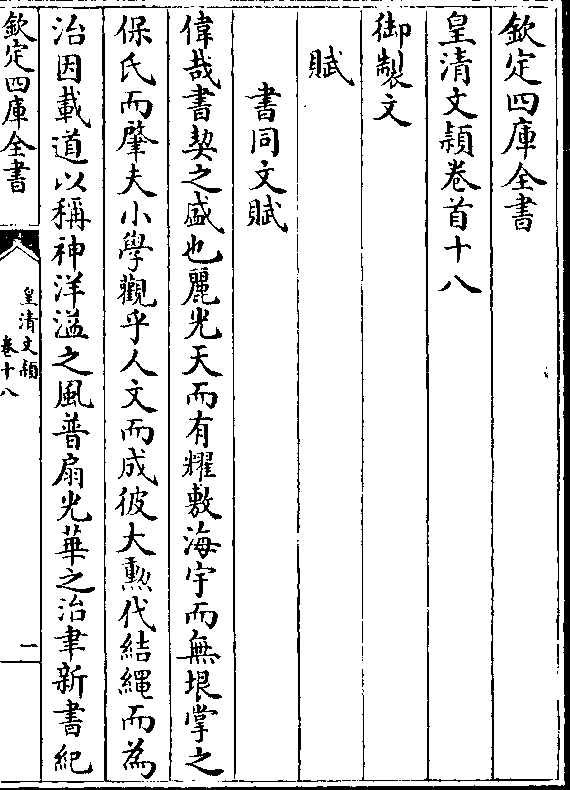 欽定四庫全書
皇清文穎卷首十八
御製文
賦
書同文賦
偉哉書契之盛也麗光天而有耀敷海宇而無垠掌之
保氏而肇夫小學觀乎人文而成彼大勲代結繩而為
治因載道以稱神洋溢之風普扇光華之治聿新書紀
欽定四庫全書
皇清文穎
卷十八
一